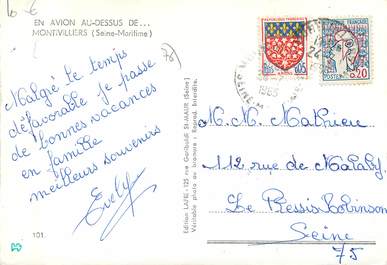 10 €
EN AVION AU-DESSUS DE...
MONTIVILLIERS (Seine-Maritime)
78
Malgré le temps
défavorable je passe
de bonnes vacances
en famille
meilleurs souvenirs
Evelyne
101
Edition LAPIE - 125 rue Garibaldi St-MAUR (Seine)
Véritable photo au bromure - Reprod. Interdite.
REPUBLIQUE FRANÇAISE
0,05
POSTES
AMIENS
POSTES
0,20
1965
M. M. Mathieu
112 rue de Malabry
Le Plessis Robinson
Seine
75